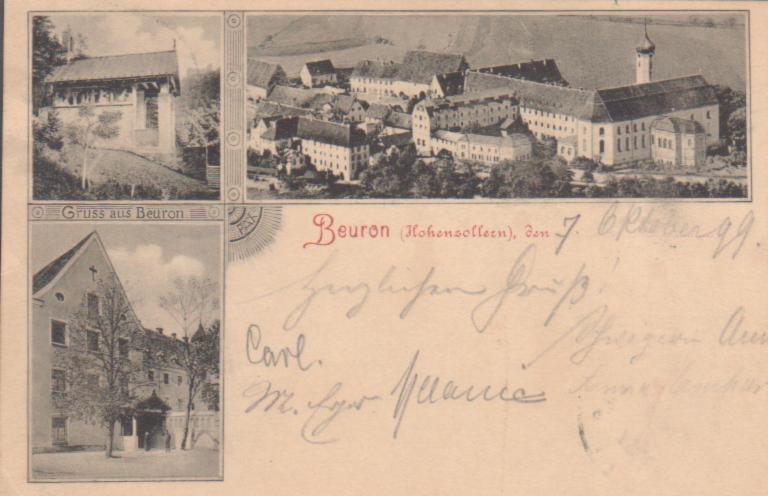 Gruss aus Beuron
Beuron (Hohenzollern), den 7. Oktober 99.
Herzlichen Gruß!
Carl.
Schwägerin
M. Eger Melanie